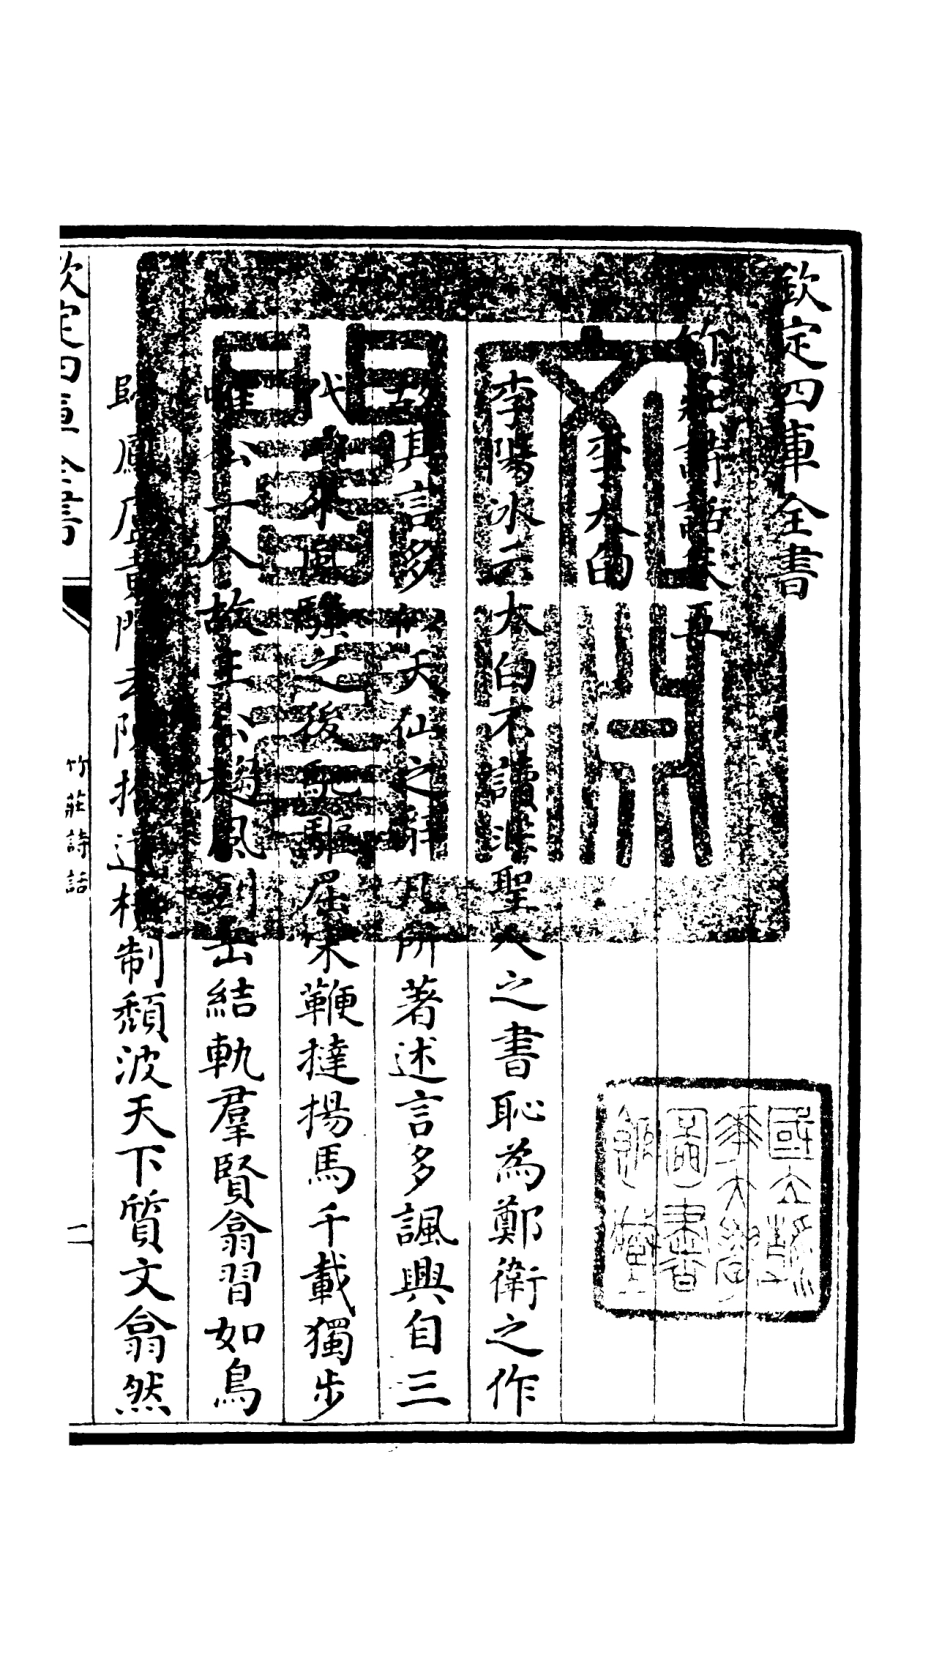 欽定四庫全書
竹莊詩話卷五
李太白
李陽冰云太白不讀非聖人之書恥為鄭衛之作
故其言多似天仙之辭凡所著述言多諷興自三
代以來風騷之後馳驅屈宋鞭撻揚馬千載獨步
唯公一人故王公趨風列岳結軌羣賢翕習如鳥
歸鳳盧黃門云陳拾遺横制頽波天下質文翕然
欽定四庫全書
竹莊詩話
一
文淵閣寶
國立浙
江大學
圖書館